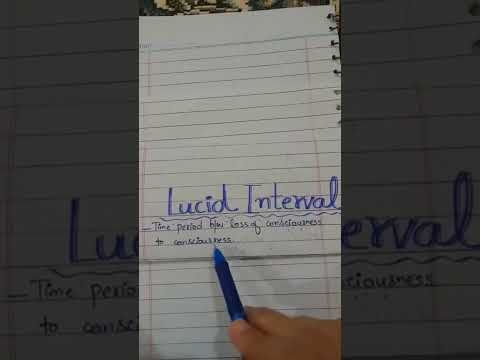 Lucid Interval
- Time period b/w loss of consciousness
to consciousness.